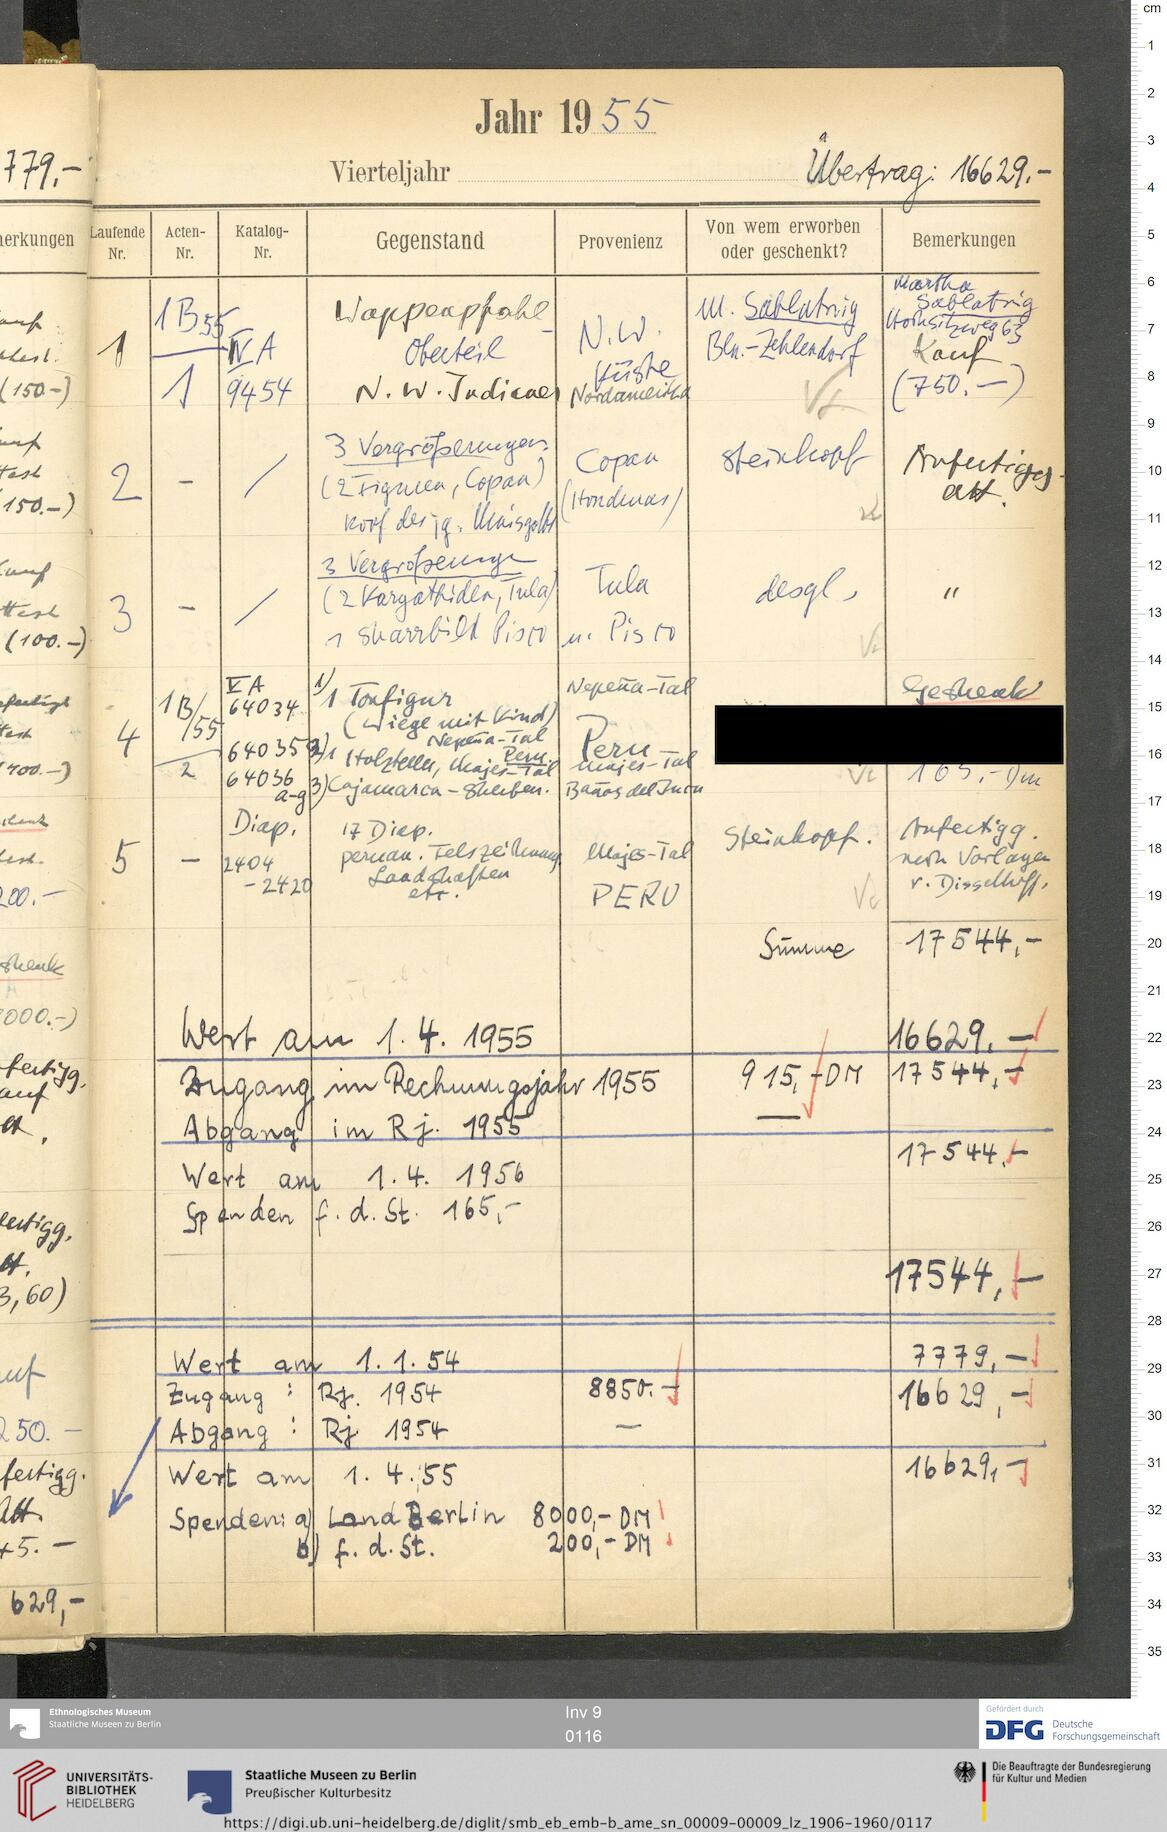 Jahr 1955
Vierteljahr
Übertrag: 16629.-
779.-
Laufende Nr.
Acten-Nr.
Katalog-Nr.
Gegenstand
Provenienz
Von wem erworben oder geschenkt?
Bemerkungen
1
1B55
1
IV A
9454
Wappenpfahl-
Oberteil
N.W. Indianer
N.W.
Küste
Nordamerika
M. Sablatnig
Bln.-Zehlendorf
Martha
Sablatnig
Kauf
(750.-)
2
-
/
3 Vergrößerungen
(2 Figuren, Copan)
Kopf des jg. Maisgotts
Copan
(Honduras)
Steinkopf
Anfertigg.
Att.
3
-
/
3 Vergrößerungen
(2 Karyathiden, Tula)
1 Scharrbild Pisco
Tula
u. Pisco
desgl.
"
4
1B/55
2
V A
64034
64035
64036
a-g
1) 1 Tonfigur
(Wiege mit Kind)
Nepeña-Tal
2) 1 Holzteller, Majes-Tal
Peru
3) Cajamarca-Scherben.
Nepeña-Tal
Peru
Majes-Tal
Baños del Inca
Geschenk
165,- DM
5
-
Diap.
2404
-2420
17 Diap.
peruan. Felszeichnung
Landschaften
etc.
Majes-Tal
PERU
Steinkopf.
Anfertigg.
nach Vorlagen
v. Disselhoff.
Summe 17544,-
Wert am 1.4.1955 16629.-
Zugang im Rechnungsjahr 1955 915,-DM 17544,-
Abgang im Rj. 1955 —
Wert am 1.4.1956 17544,-
Spenden f.d.St. 165,-
17544,-
Wert am 1.1.54 7779,-
Zugang : Rj. 1954 8850.- 16629,-
Abgang : Rj 1954 —
Wert am 1.4.55 16629,-
Spenden: a) Land Berlin 8000,- DM
b) f.d.St. 200,- DM
629,-
cm
1
2
3
4
5
6
7
8
9
10
11
12
13
14
15
16
17
18
19
20
21
22
23
24
25
26
27
28
29
30
31
32
33
34
35
Ethnologisches Museum
Staatliche Museen zu Berlin
Inv 9
0116
Gefördert durch
DFG Deutsche
Forschungsgemeinschaft
UNIVERSITÄTS-
BIBLIOTHEK
HEIDELBERG
Staatliche Museen zu Berlin
Preußischer Kulturbesitz
Die Beauftragte der Bundesregierung
für Kultur und Medien
https://digi.ub.uni-heidelberg.de/diglit/smb_eb_emb-b_ame_sn_00009-00009_lz_1906-1960/0117